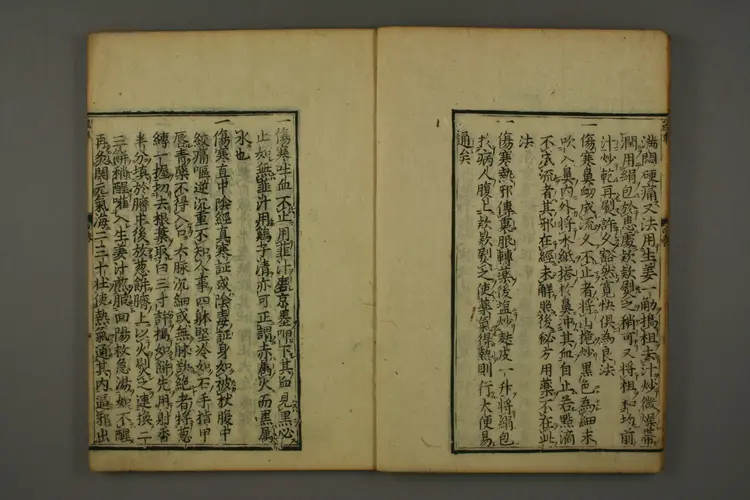 滿悶硬痛又法用生姜一觔搗柤去汁炒微燥帶
潤用絹包於患處款款熨之稍可又將柤和均前
汁炒乾再熨許久豁然寬快俱為良法
一傷寒鼻衄成流久不止者將山梔炒黑色為細末
吹入鼻內外將水紙搭於鼻冲其血自止若點滴
不成流者其邪在經未解照後秘方用藥不在此
法
一傷寒熱邪傳裏服轉藥後塩炒麩皮一升將絹包
於病人腹上款款熨之使藥氣得熱則行大便易
通矣
一傷寒吐血不止用韭汁磨京墨呷下其血見黑必
止如無韭汁用鷄子清亦可正謂赤属火而黑属
水也
一傷寒直中陰經真寒証或陰毒証身如被杖腹中
絞痛嘔逆沉重不知人事四躰堅冷如石手指甲
唇青藥不得入口六脉沉細或無脉欲絕者將葱
縛一握切去根葉取白三寸許搗如餅先用射香
半分填於臍中後放葱餅臍上以火熨之連換二
三餅稍醒灌入生姜汁煎服回陽救急湯如不醒
再灸關元氣海二三十壮使熱氣通其內逼邪出